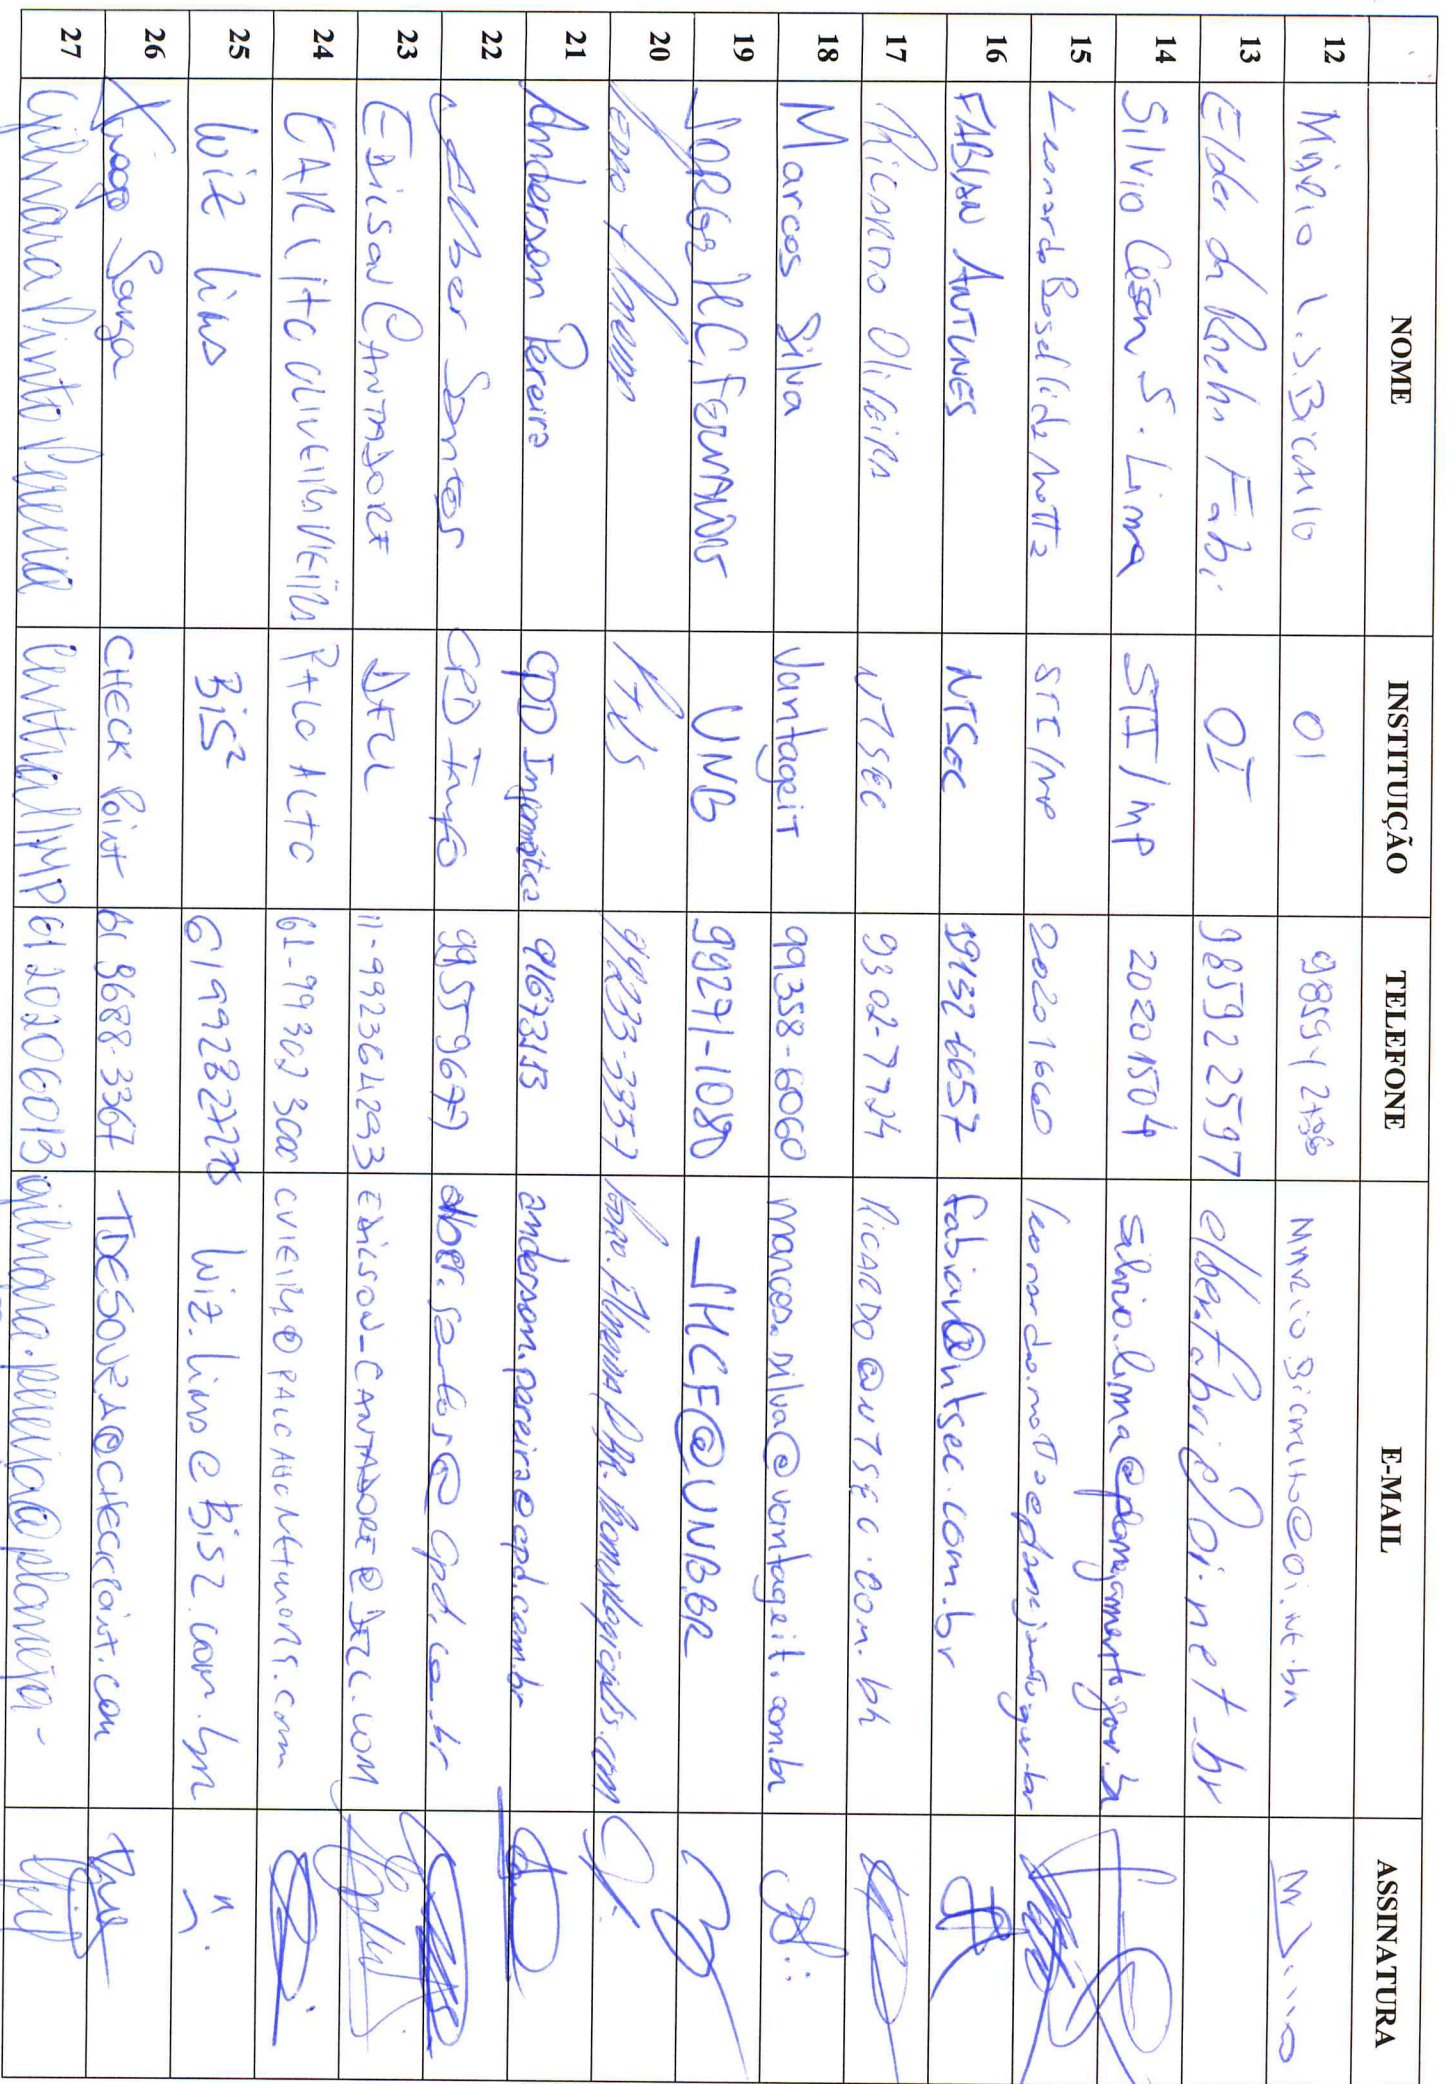 NOME INSTITUIÇÃO TELEFONE E-MAIL ASSINATURA
12 Márcio L.S. Bicalho OI
13 Elder da Rocha Fabri OI 985922597
14 Silvio César S. Lima STI/MP 20201504 silvio.lima@planejamento.gov.br
15 Leonardo Boselli da Motta STI/MP 20201660 leonardo.motta@planejamento.gov.br
16 FABIAN ANTUNES NTSEC fabian@ntsec.com.br
17 RICARDO OliVEIRA NTSEC 9302-7724 RICARDO@NTSEC.COM.br
18 Marcos Silva VantageiT 99358-6060 marcos.silva@vantageit.com.br
19 JORGE H C FERNANDES UNB 99271-1080 JHCF@UNB.BR
20
21 Anderson Pereira CPD Informática 91673113 anderson.pereira@cpd.com.br
22 Alber Santos CPD Info 995596677 alber.santos@cpd.com.br
23 EDILSON CANTADORE DELL 11-992364293 EDILSON_CANTADORE@DELL.COM
24 CARLITO OLIVEIRA VIEIRA PALO ALTO 61-99302 3000
25 Luiz Lima BiS² luiz.lima@Bis2.com.br
26 Thiago Souza CHECK Point 61 9688-3367 TDESOUZA@CHECKPOINT.com
27 Gilmara Pinto Pereira Central/MP 61 20206013 gilmara.pereira@planeja-